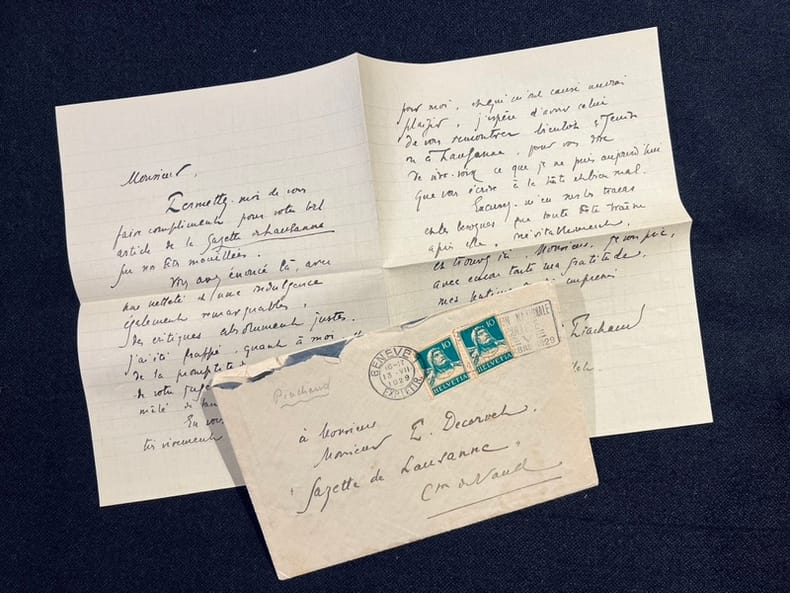 Monsieur,
Permettez-moi de vous
faire compliment pour votre bel
article de la Gazette de Lausanne
sur nos fêtes mouillées.
Vous avez énoncé là, avec
une netteté et une indulgence
également remarquables,
des critiques absolument justes.
J'ai été frappé, quant à moi
de la promptitude
de votre juge
mêlé de
En vous
très vivement
pour moi, et qui m'ont causé un vrai
plaisir, j'espère d'avoir celui
de vous rencontrer bientôt à Genève
ou à Lausanne, pour vous dire
de vive-voix ce que je ne puis aujourd'hui
que vous écrire à la hâte et bien mal.
Excusez-m'en sur les tracas
et les besognes que toute fête traîne
après elle, inévitablement,
et trouvez ici, Monsieur, je vous prie,
avec encore toute ma gratitude,
mes sentiments
Piachaud
Piachaud
GENÈVE
13. VII
1929
EXP. LETTR.
10 10
HELVETIA HELVETIA
NATIONALE
1929
à Monsieur
Monsieur
Gazette de Lausanne
Cton de Vaud